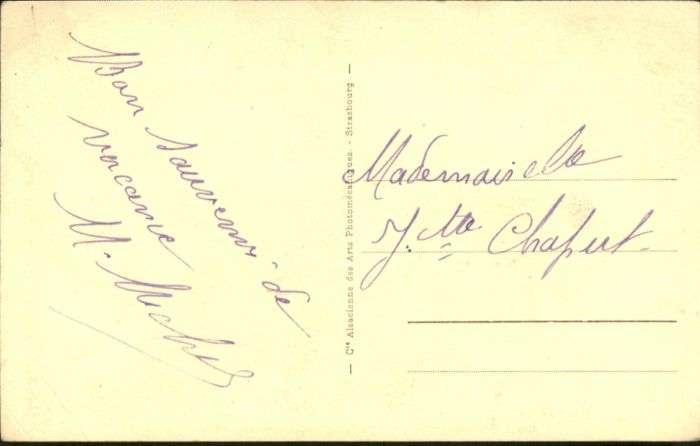 Bon Souvenir de
vacance
M. Michel
— Cie Alsacienne des Arts Photomécaniques - Strasbourg —
Mademoiselle
J. tte Chaput.